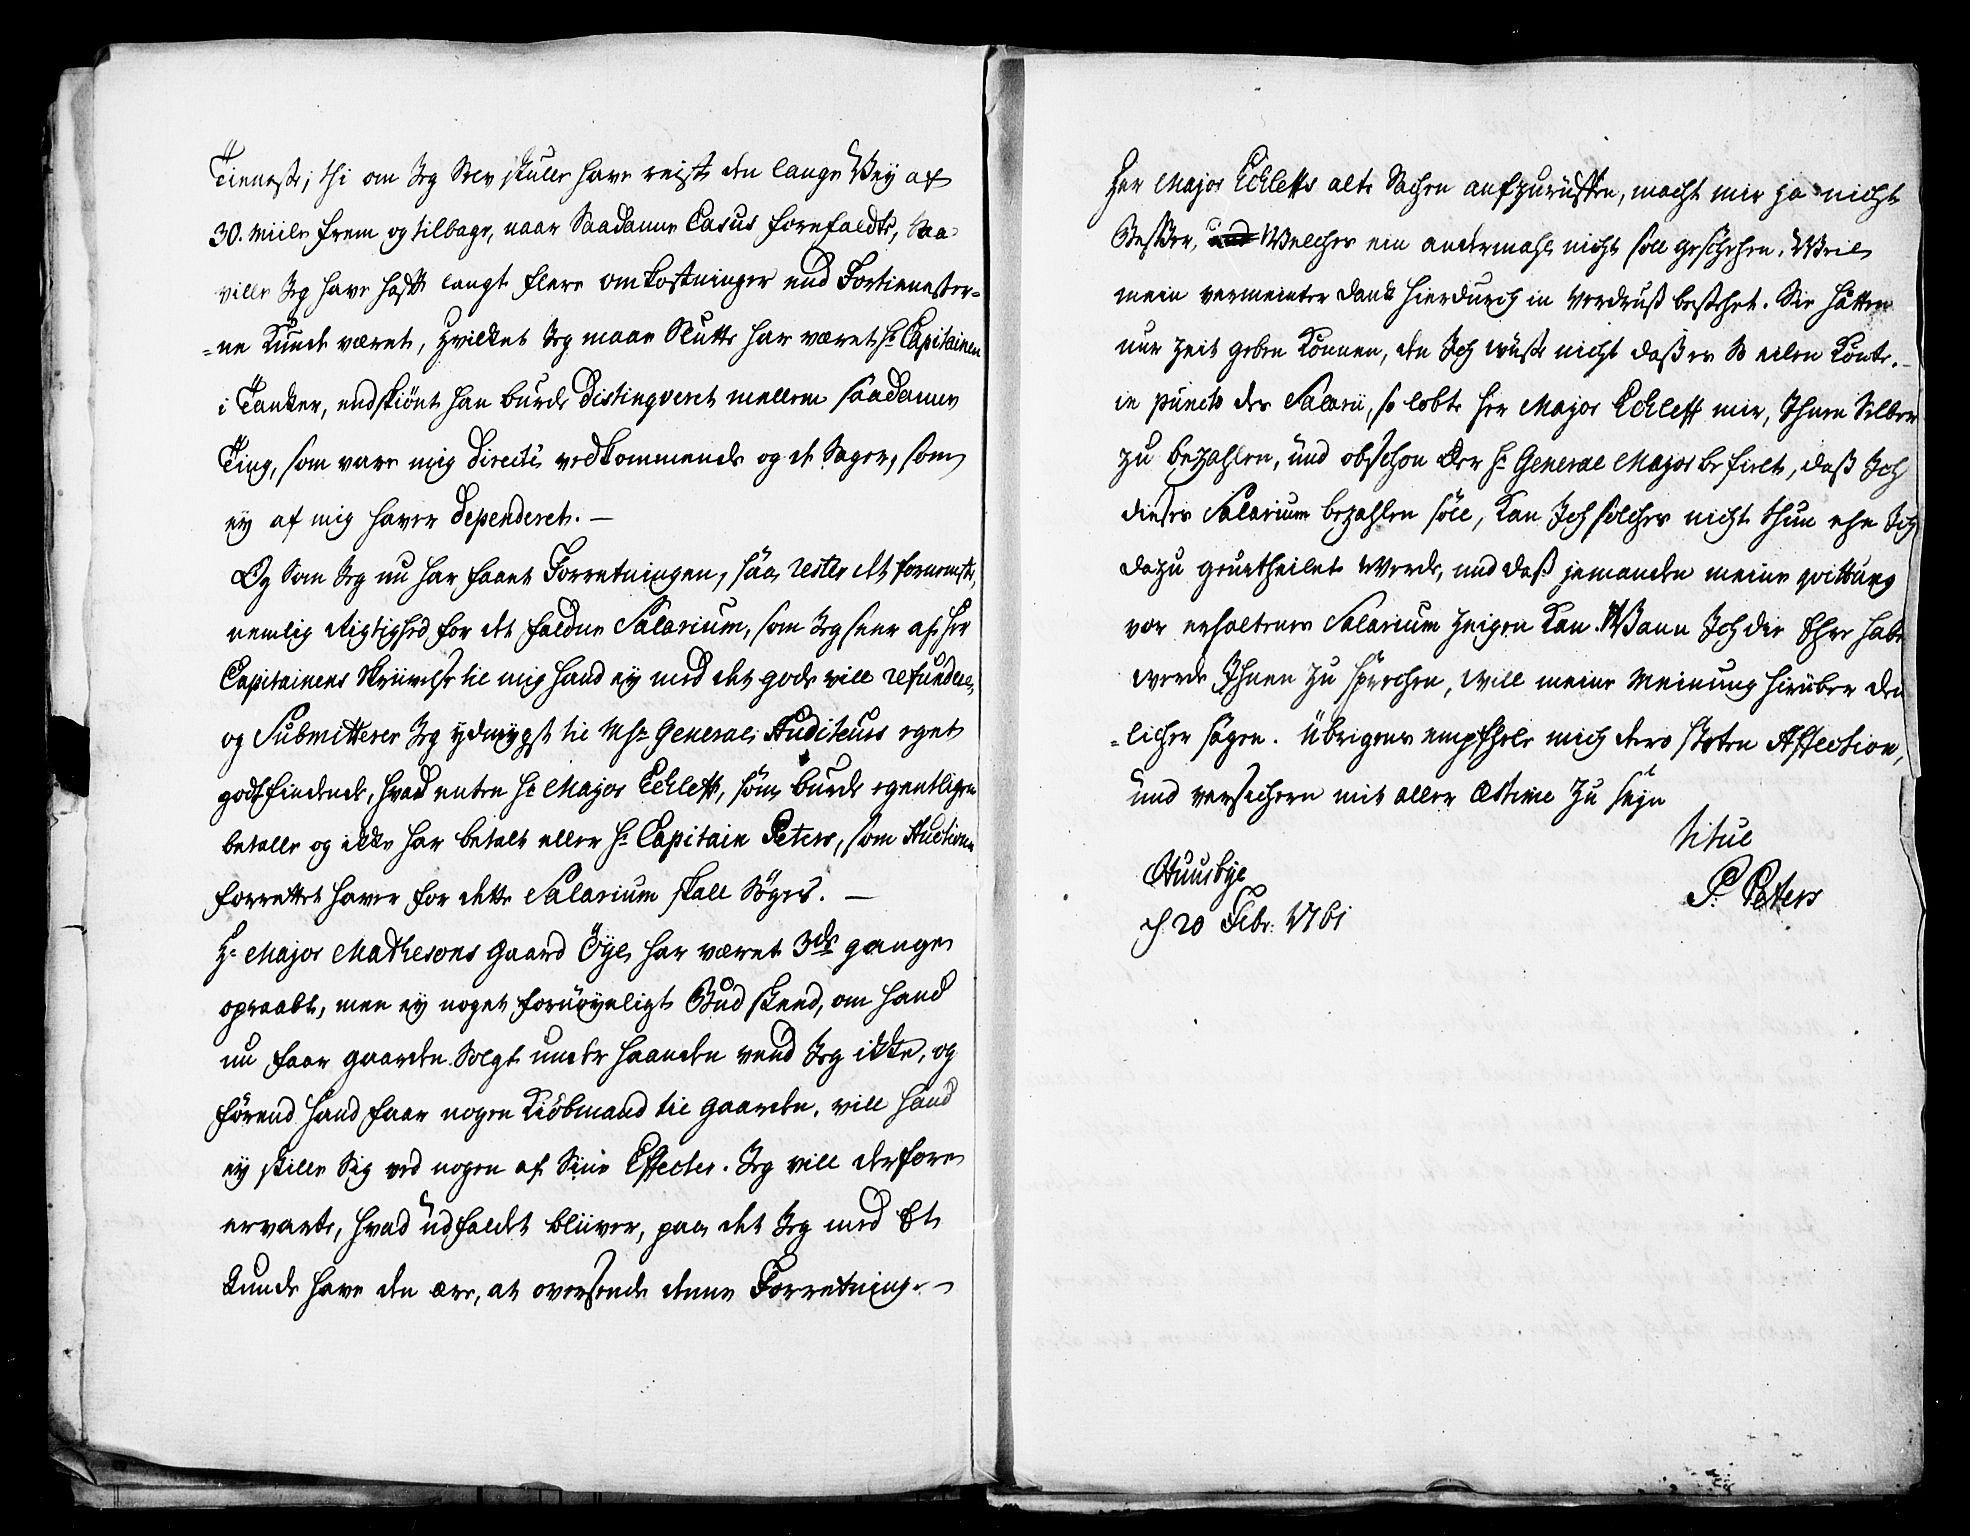 Tieneste; thi om Jeg Selv skulle have reist den lange Vey af
30. Miile frem og tilbage, naar Saadanne Casus forefaldt, Saa
ville Jeg have hafft langt flere omkostninger end Fortienester-
=ne Kunde været, hvilket Jeg maae Slutte har været Hr Capitainen
i Tanker, endskiönt han burde distingveret mellem saadanne
Ting, som vare mig directè vedkommende og de Sager, som
ey af mig haver dependeret. —
Og Som Jeg nu har faaet Forretningen, saa rester det fornemste,
nemlig Rigtighed for det faldne Salarium, som Jeg seer af Her
Capitainens Skrivelse til mig hand ey med det gode vill refundere,
og Submitterer Jeg ydmygst til Hr General Auditeurs eget
godtfindende, hvad enten Hr Major Eckleff, som burde egentligen
betalle og ikke har betalt eller Hr Capitain Peters, som Auctionen
forrettet haver for dette Salarium skall Söges. —
Hr Major Mathesons Gaard Öye, har været 3de gange
opraabt, men ey noget fornöyeligt Bud skeed, om hand
nu faar gaarden Solgt under haanden veed Jeg ikke, og
förend hand faar nogen Kiöbmand til gaarden, vill hand
ey skille Sig ved nogen af Sine Effecter. Jeg vill derfore
ervarte, hvad udfaldet bliver, paa det Jeg med Et
kunde have den ære, at oversende denne Forretning. —
Her Major Eckleffs alte Sachen aufzurüsten, macht mir ja nicht
Besser, Welches ein andermahl nicht soll geschehen. Weil
mein vermeinter danck hierdurch in Verdruß bestehet. Sie hätten
nur Zeit geben Können, den Ich wuste nicht daß es So eilen Könte. –
in puncto des Salarii, so lobte Her Major Eckleff mir, Ihnen Selber
zu bezahlen, und obschon Der Hr General Major befielt, daß Ich
dieses Salarium bezahlen soll, Kan Ich solches nicht thun ehe Ich
dazu geurtheilet werde, und daß jemanden meine qvittung
vor erhaltenes Salarium zeigen Kan. Wann Ich die Ehre habe
werde Ihnen zu sprechen, will meine Meinung hierüber deu
=licher sagen. Übrigens empfehle mich dero steten Affection,
und versichern mit aller Estime zu seyn
titul
P. Peters
Huusbye
d 20 Febr: 1761